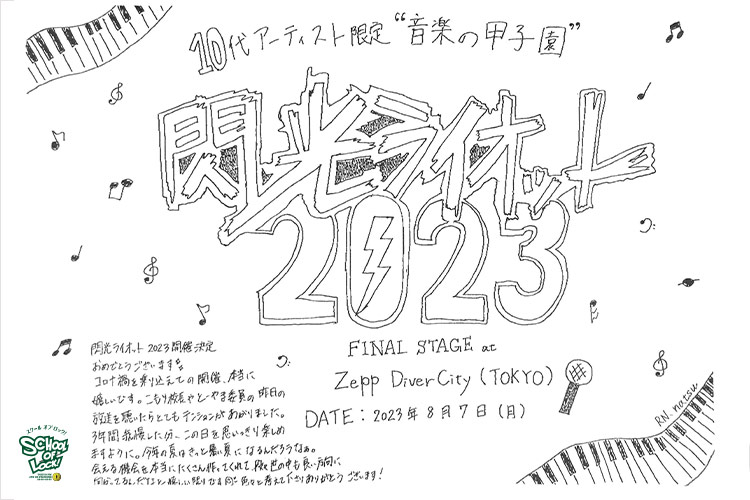 10代アーティスト限定“音楽の甲子園”
閃光ライオット
2023
FINAL STAGE at
Zepp DiverCity (TOKYO)
DATE: 2023年8月7日(月)
閃光ライオット2023開催決定
おめでとうございます。
コロナ禍を乗り越えての開催、本当に
嬉しいです。こもり校長やとーやま委員の昨日の
放送を聴いたらとてもテンションがあがりました。
3年間我慢した分、この日を思いっきり楽しめ
ますように。今年の夏はきっと暑い夏になるんだろうなぁ。
会える機会を本当にたくさん作ってくれて、
世の中も良い方向に
ありがとうございます!
RN. natsu
スクール オブ ロック!
SCHOOL OF LOCK!